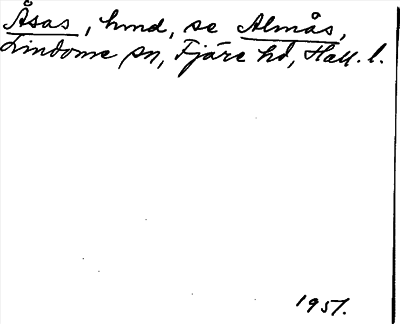 Åsas, hmd, se Almås,
Lindome sn, Fjäre hd, Hall. l.
1951.